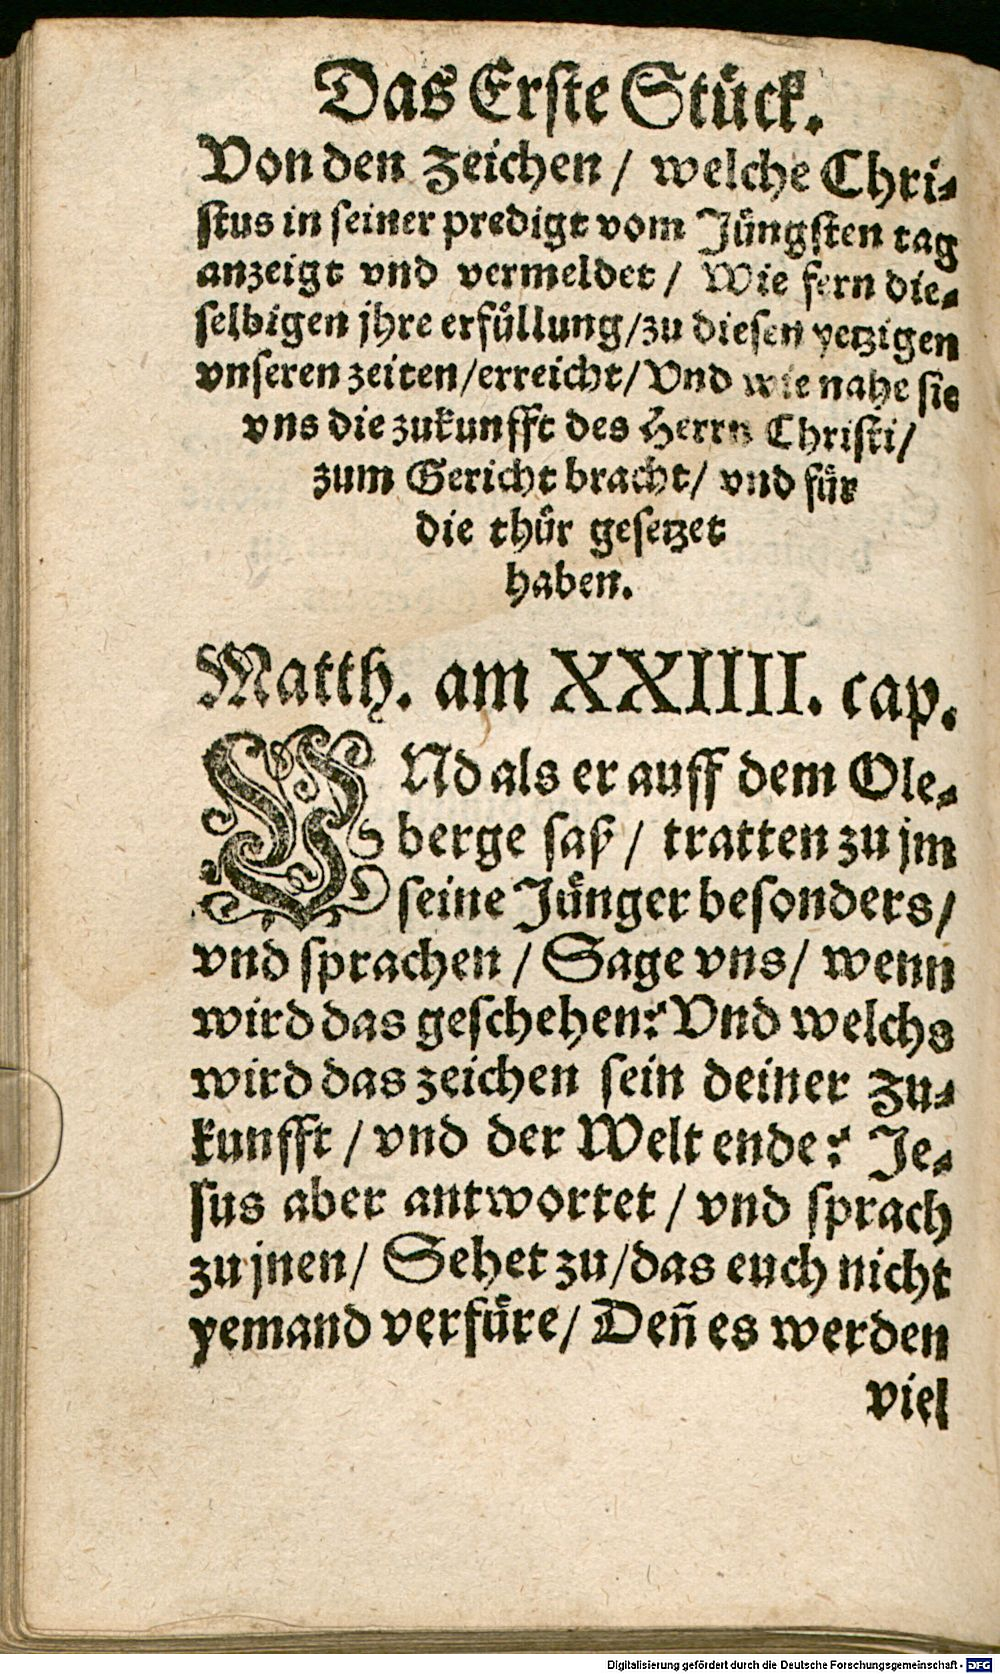 Das Erste Stuͤck.
Von den Zeichen / welche Chri⸗
stus in seiner predigt vom Juͤngsten tag
anzeigt vnd vermeldet / Wie fern die⸗
selbigen jhre erfuͤllung / zu diesen yetzigen
vnseren zeiten / erreicht / Vnd wie nahe sie
vns die zukunfft des Herrn Christi /
zum Gericht bracht / vnd fuͤr
die thuͤr gesetzet
haben.
Matth. am XXIIII. cap.
VNd als er auff dem Ole⸗
berge saß / tratten zu jm
seine Juͤnger besonders /
vnd sprachen / Sage vns / wenn
wird das geschehen? Vnd welchs
wird das zeichen sein deiner Zu⸗
kunfft / vnd der Welt ende? Je⸗
sus aber antwortet / vnd sprach
zu jnen / Sehet zu / das euch nicht
yemand verfuͤre / Deñ es werden
viel
Digitalisierung gefördert durch die Deutsche Forschungsgemeinschaft - DFG